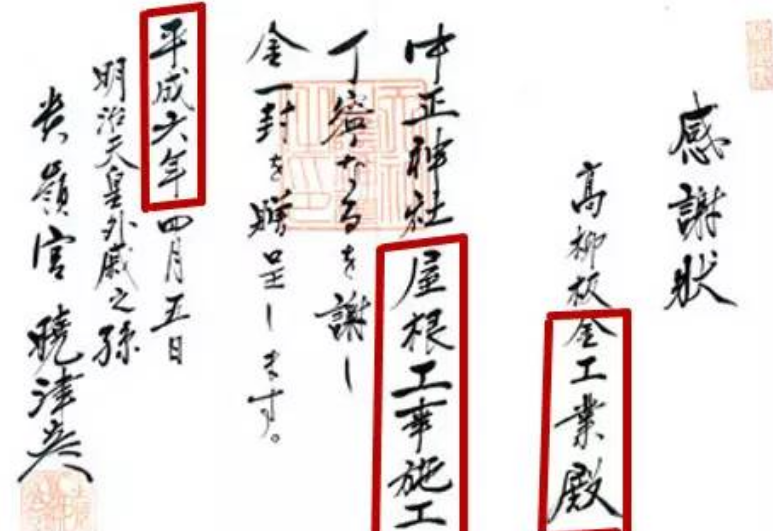 感謝状
高柳板金工業殿
中正神社屋根工事施工
丁寧なるを謝し
金一封を贈呈します。
平成六年四月五日
明治天皇外戚之孫